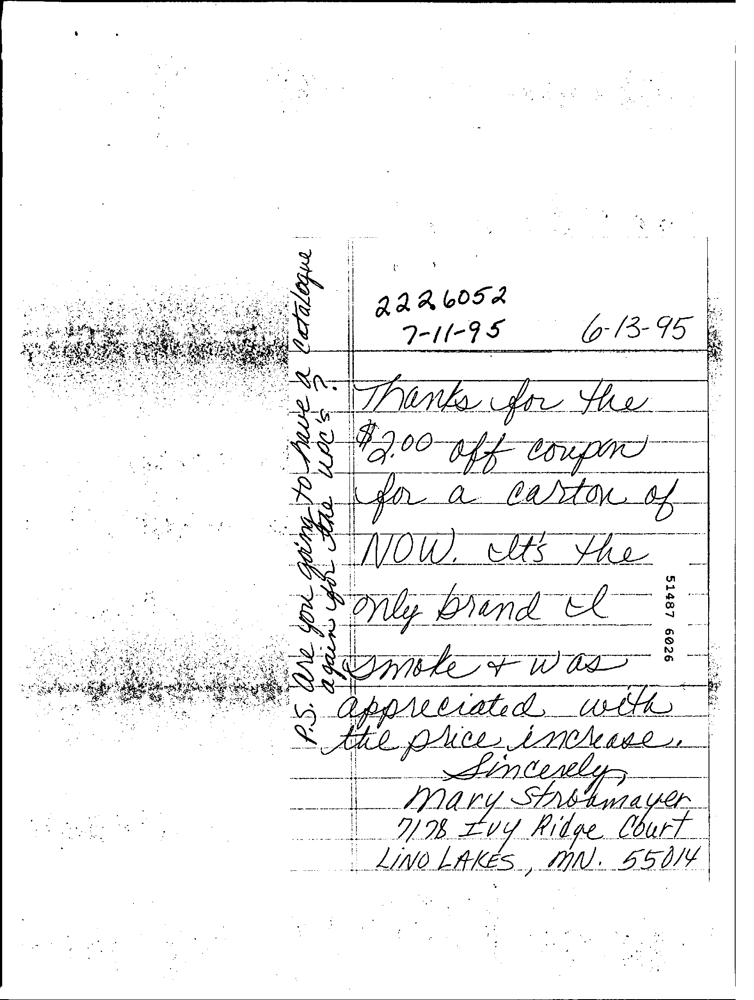 2226052
7-11-95
6-13-95
Thanks for the
$2.00 off coupon
for a carton of
NOW. It's the
only brand I
smoke + was
appreciated with
the price increase.
Sincerely,
Mary Strobmayer
7178 Ivy Ridge Court
LINO LAKES, MN. 55014
P.S. are you going to have a catalogue
again for the UPC's?
51487 6026